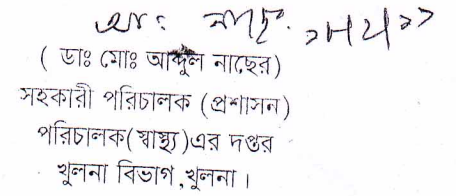 আঃ নাছে
( ডাঃ মোঃ আব্দুল নাছের)
সহকারী পরিচালক (প্রশাসন)
পরিচালক(স্বাস্থ্য)এর দপ্তর
খুলনা বিভাগ,খুলনা।